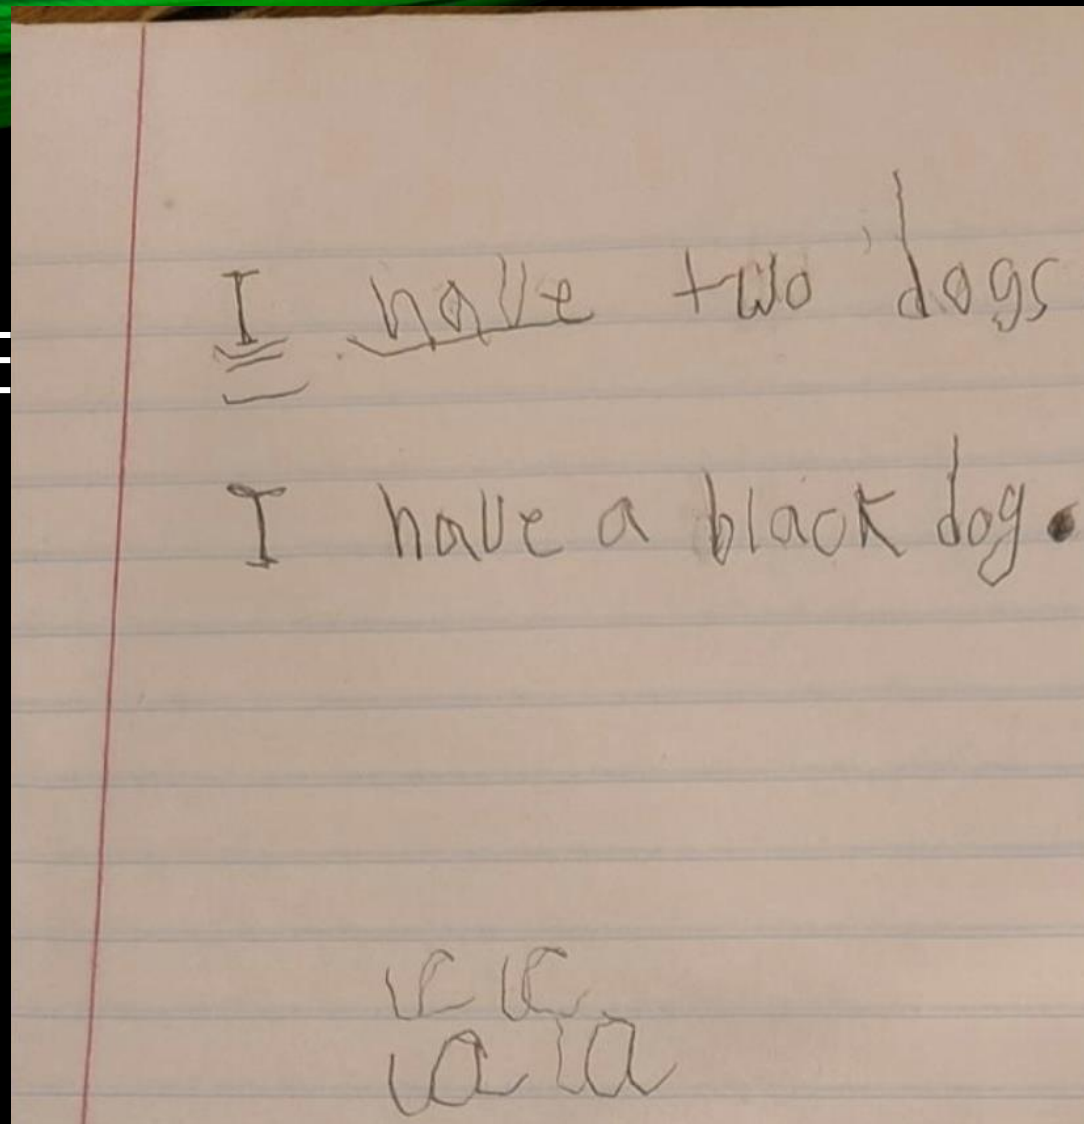 I have two dogs
I have a black dog.